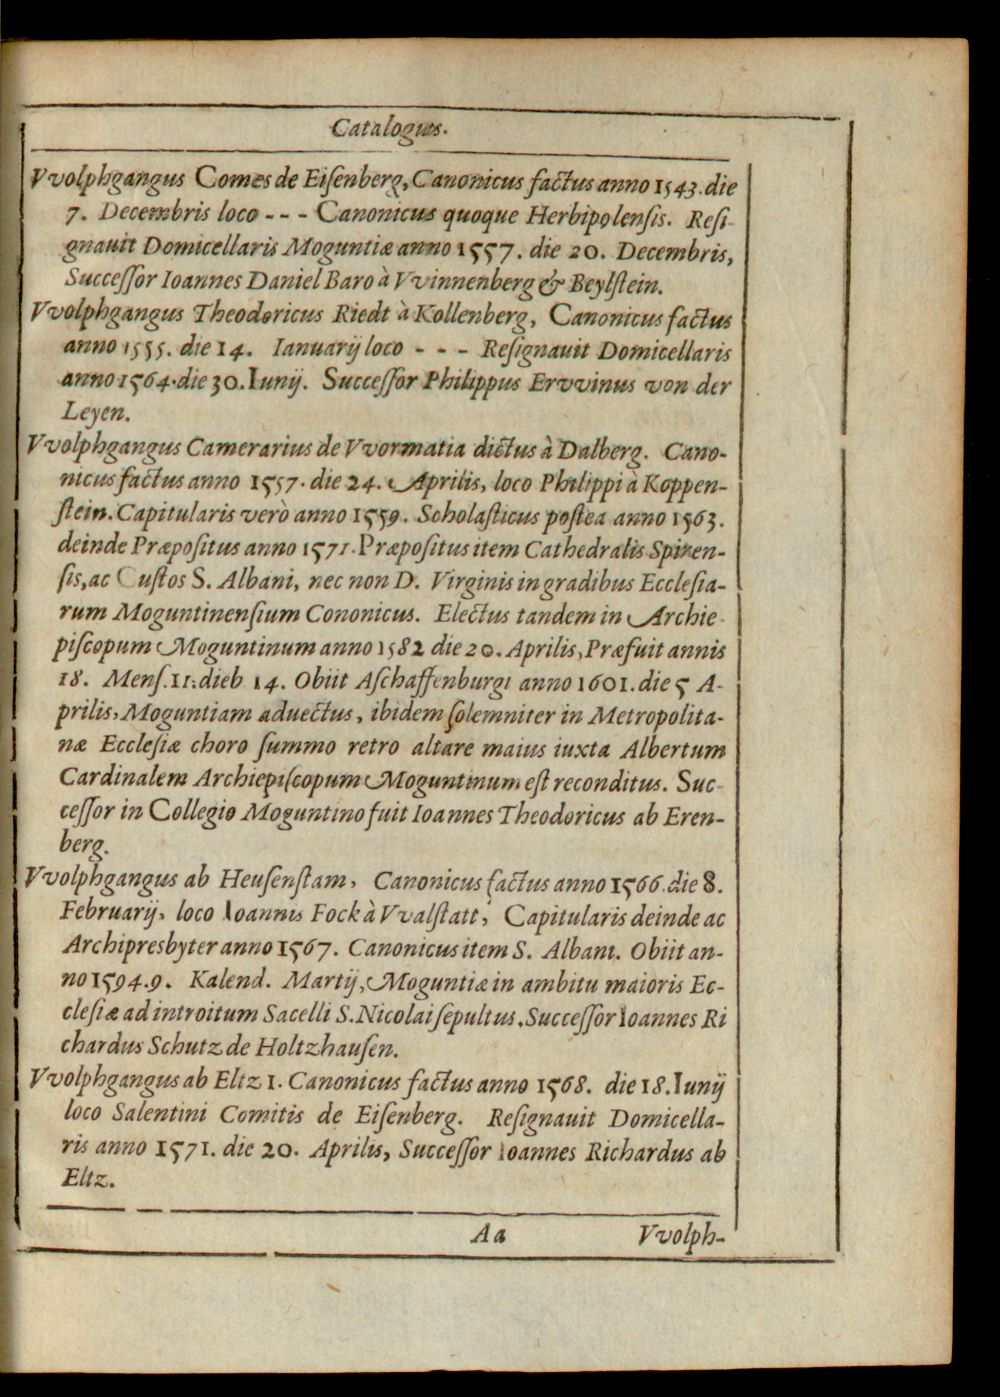 Catalogus.
Vvolphgangus Comes de Eiſenberg, Canonicus factus anno 1543. die
7. Decembris loco - - - Canonicus quoque Herbipolenſis. Reſi-
gnauit Domicellaris Moguntiæ anno 1557. die 20. Decembris,
Succeſſor Ioannes Daniel Baro à Vvinnenberg & Beylſtein.
Vvolphgangus Theodoricus Riedt à Kollenberg, Canonicus factus
anno 1555. die 14. Ianuarij loco - - - Reſignauit Domicellaris
anno 1564. die 30. Iunij. Succeſſor Philippus Ervvinus von der
Leyen.
Vvolphgangus Camerarius de Vvormatia dictus à Dalberg. Cano-
nicus factus anno 1557. die 24. Aprilis, loco Philippi à Koppen-
ſtein. Capitularis verò anno 1559. Scholaſticus poſtea anno 1563.
deinde Præpoſitus anno 1571. Præpoſitus item Cathedralis Spiren-
ſis, ac Cuſtos S. Albani, nec non D. Virginis in gradibus Eccleſia-
rum Moguntinenſium Cononicus. Electus tandem in Archie-
piſcopum Moguntinum anno 1582 die 20. Aprilis, Præfuit annis
18. Menſ. 11. dieb 14. Obiit Aſchaffenburgi anno 1601. die 5 A-
prilis, Moguntiam aduectus, ibidem ſolemniter in Metropolita-
næ Eccleſiæ choro ſummo retro altare maius iuxta Albertum
Cardinalem Archiepiſcopum Moguntinum eſt reconditus. Suc-
ceſſor in Collegio Moguntino fuit Ioannes Theodoricus ab Eren-
berg.
Vvolphgangus ab Heuſenſtam, Canonicus factus anno 1566. die 8.
Februarij, loco Ioannis Fock à Vvalſtatt, Capitularis deinde ac
Archipresbyter anno 1567. Canonicus item S. Albani. Obiit an-
no 1594. 9. Kalend. Martij, Moguntiæ in ambitu maioris Ec-
cleſiæ ad introitum Sacelli S. Nicolai ſepultus. Succeſſor Ioannes Ri
chardus Schutz de Holtzhauſen.
Vvolphgangus ab Eltz 1. Canonicus factus anno 1568. die 18. Iunij
loco Salentini Comitis de Eiſenberg. Reſignauit Domicella-
ris anno 1571. die 20. Aprilis, Succeſſor Ioannes Richardus ab
Eltz.
Aa Vvolph-